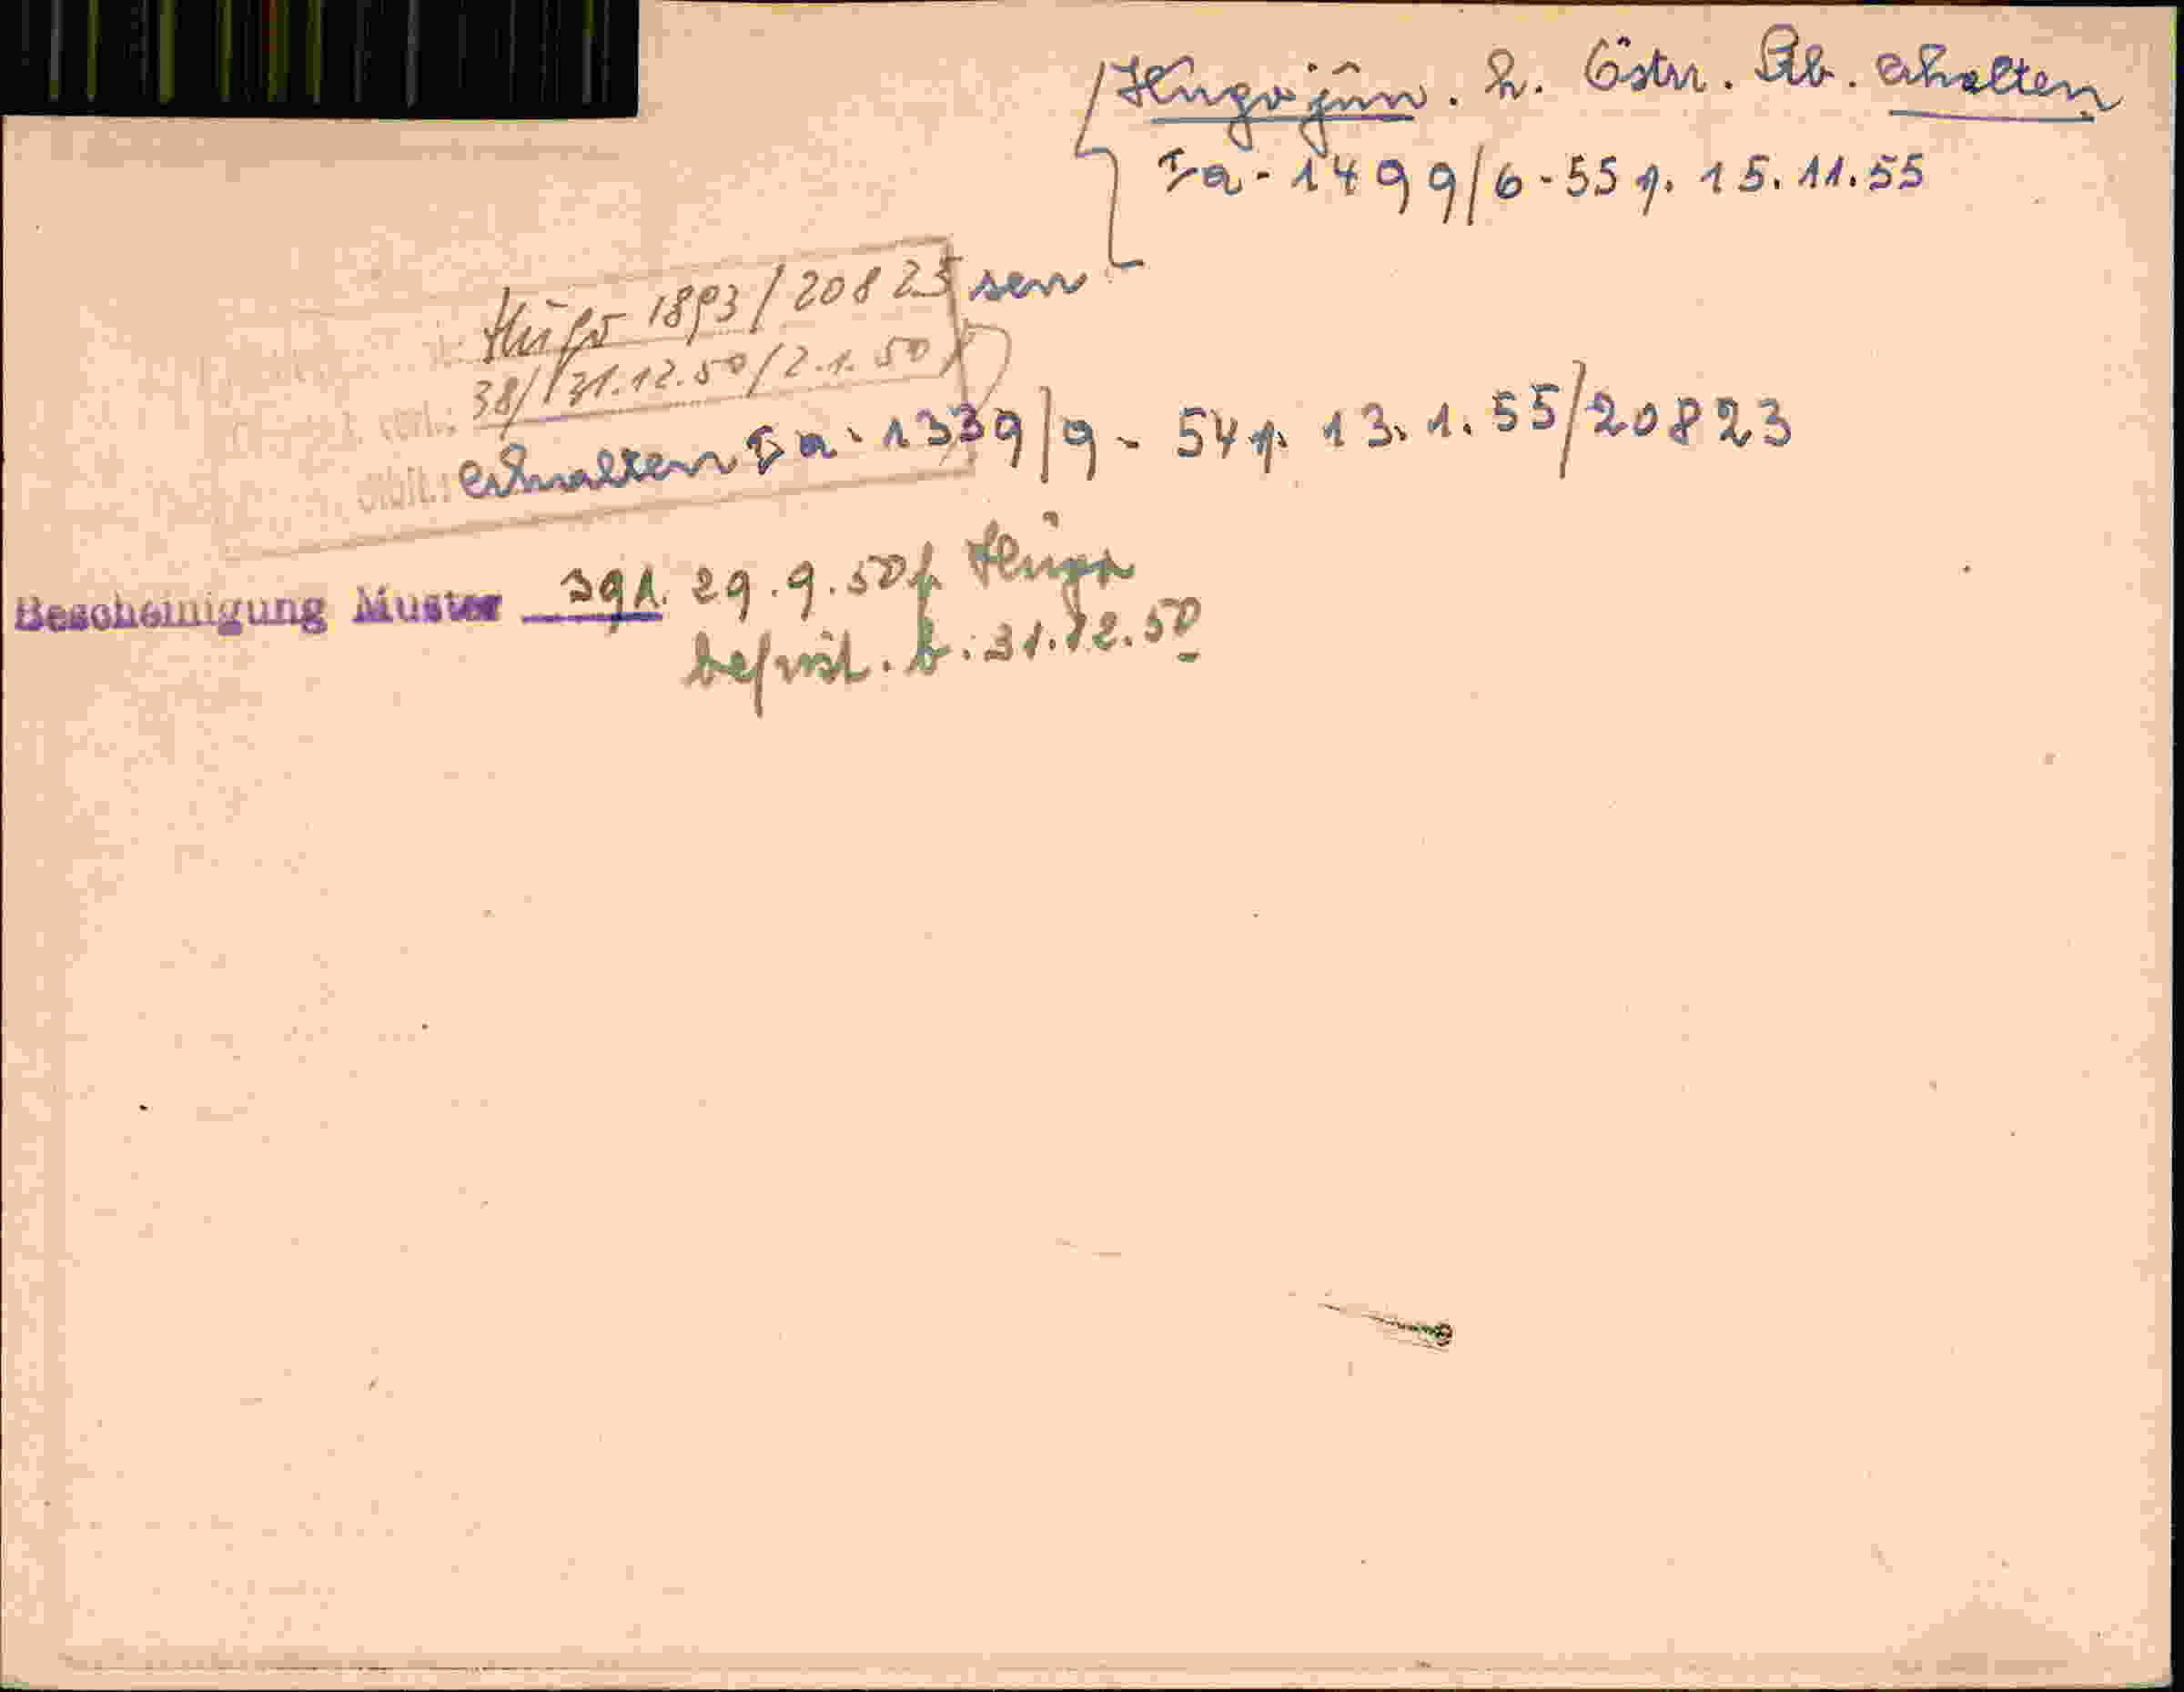 Hugo jun. 2. Östr. Rb. erhalten
Fa - 1499/6 - 55 p. 15.11.55
Hugo 1893/20823 sen
38/ /31.12.50/2.1.50
erhalten Fa - 1339/9 - 54 p. 13.1.55/20823
Bescheinigung Muster 39A. 29.9.50 f. Hugo
befrist. b. 31.12.50